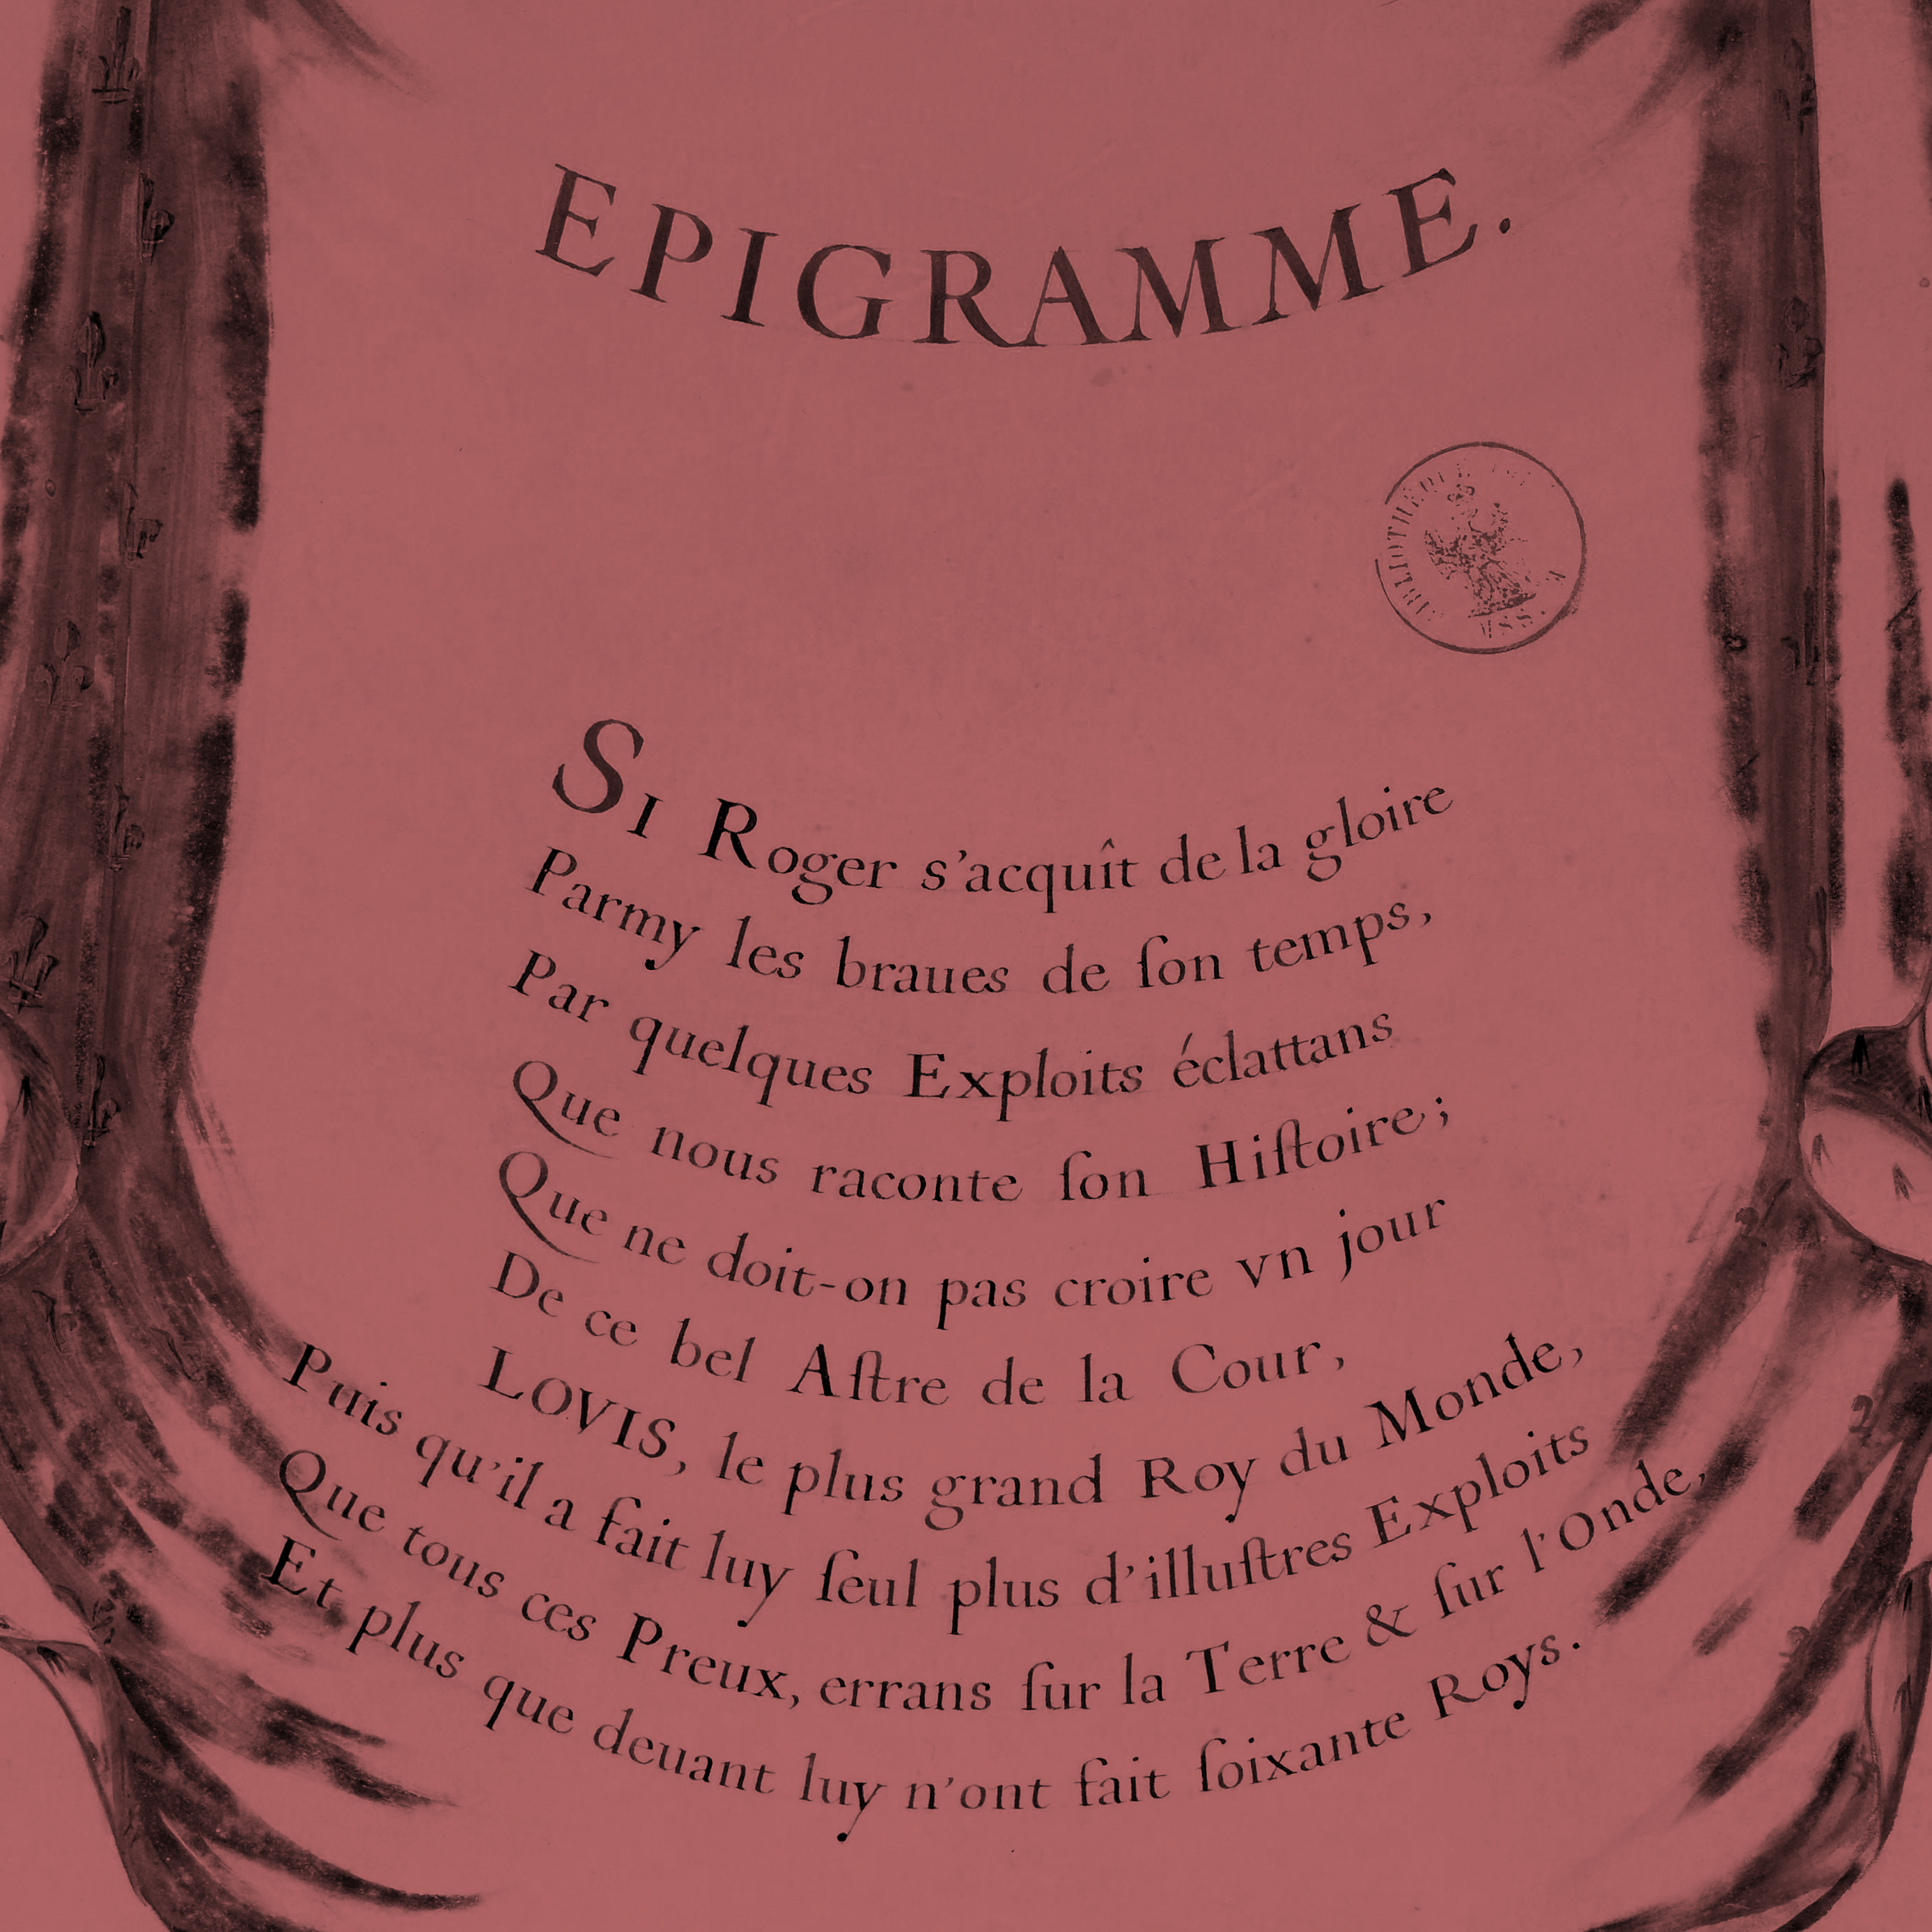 EPIGRAMME.
BIBLIOTHEQUE
Si Roger s'acquît de la gloire
Parmy les braues de ſon temps,
Par quelques Exploits éclattans
Que nous raconte ſon Hiſtoire;
Que ne doit-on pas croire vn jour
De ce bel Aſtre de la Cour,
LOVIS, le plus grand Roy du Monde,
Puis qu'il a fait luy ſeul plus d'illuſtres Exploits
Que tous ces Preux, errans ſur la Terre & ſur l'Onde,
Et plus que deuant luy n'ont fait ſoixante Roys.